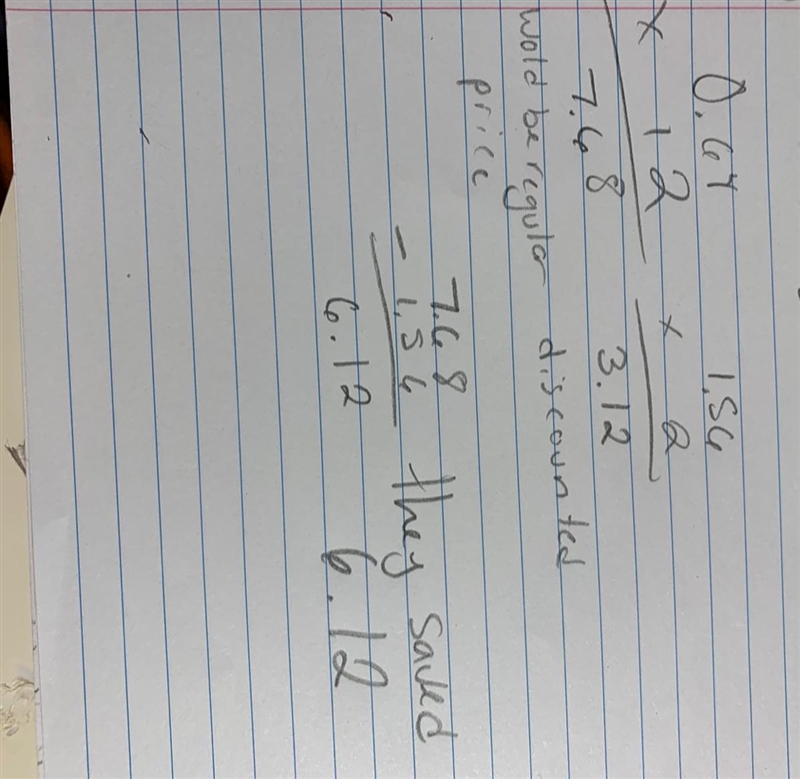 0.64 1.56
x 12 x 2
7.68 3.12
wold be regular discounted
price
7.68
- 1.56 they saved
6.12 6.12